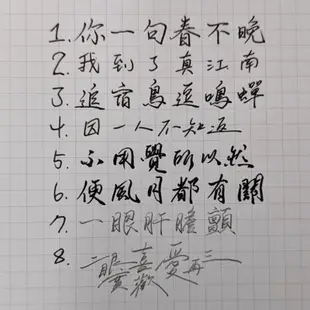 1. 你一句春不晚
2. 我到了真江南
3. 追宿鳥逗鳴蟬
4. 因一人不知返
5. 不用覺所以然
6. 便風月都有關
7. 一眼肝膽顫
8. 二眼喜歡愛再三